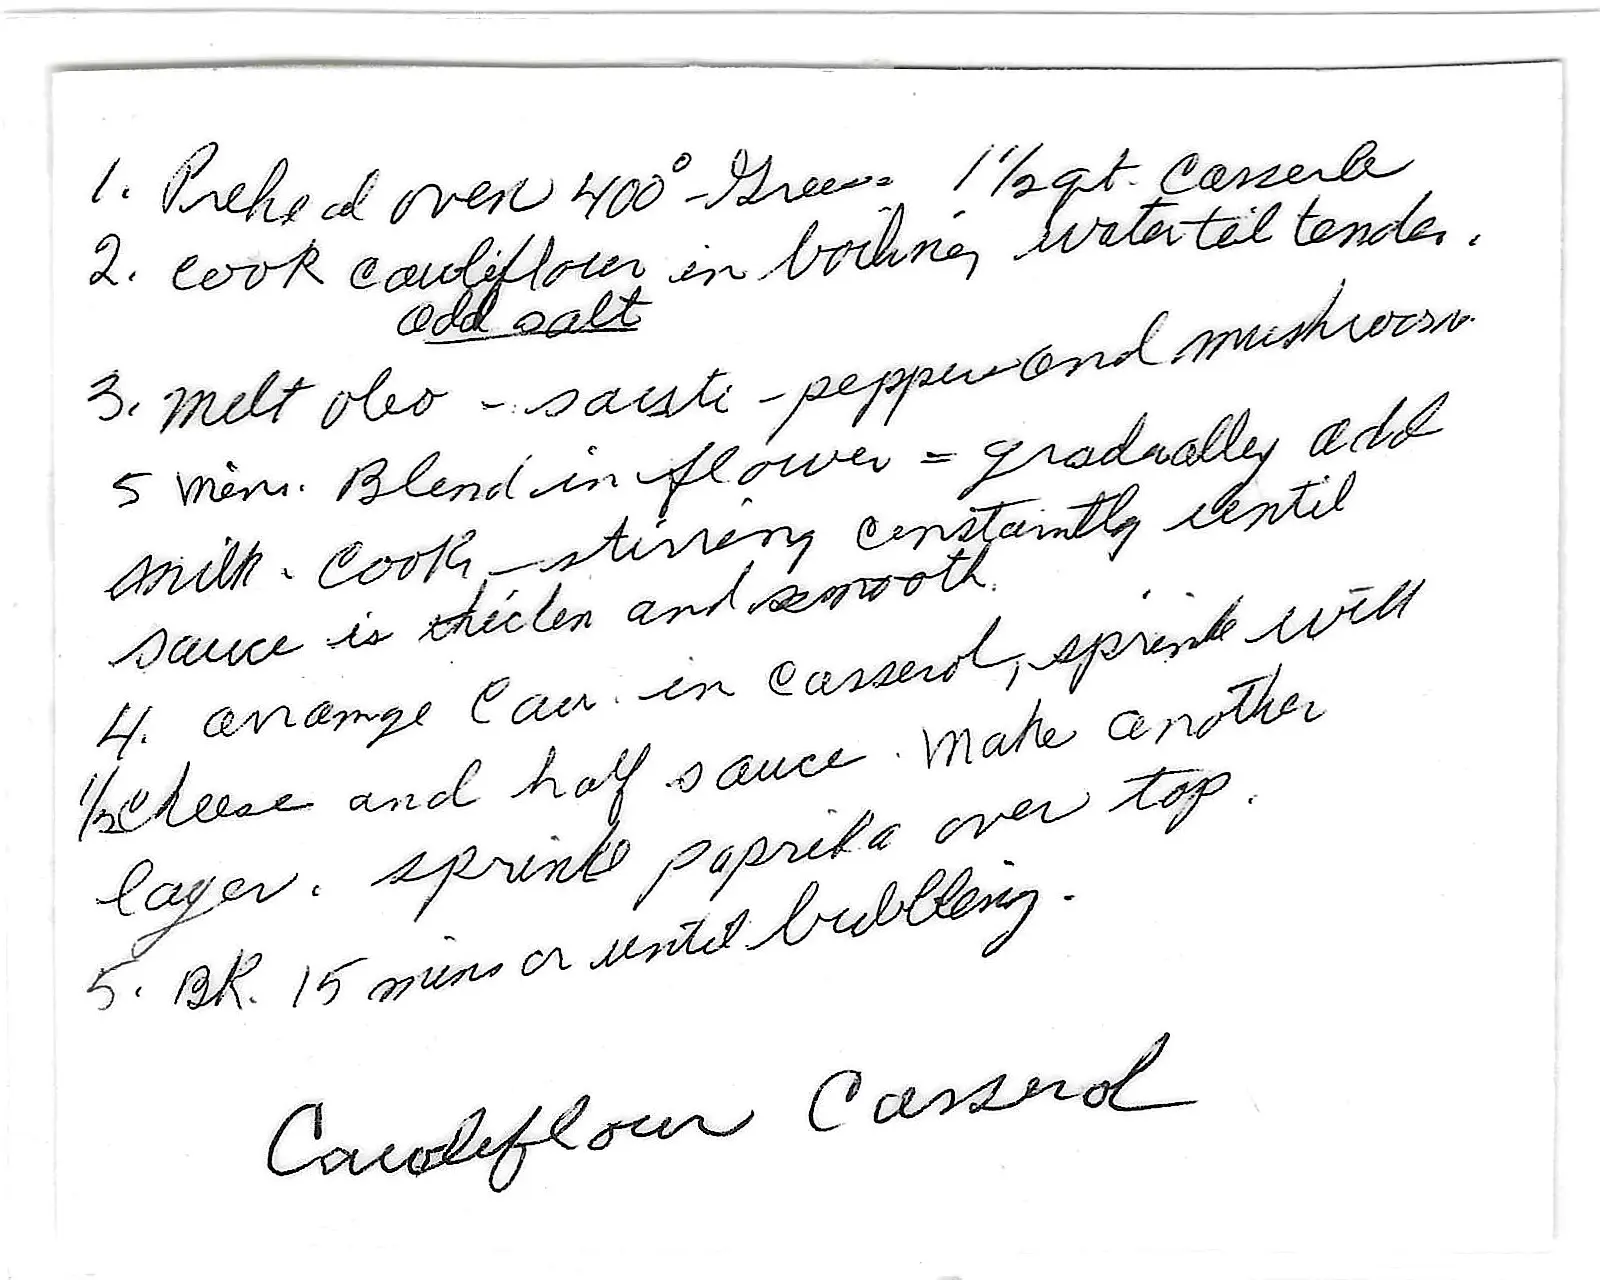 1. Prehead oven 400° - Grease 1 1/2 qt. Casserle
2. cook cauliflour in boiling water til tender.
add salt
3. melt oleo - sauste - pepper and mushroom
5 min. Blend in flower = gradually add
milk. Cook - stirring constantly until
sauce is thicken and smooth.
4. arrange Cau. in Casserol, sprinkle with
1/2 cheese and half sauce. Make another
layer. sprinkle paprika over top.
5. BK. 15 mins or until bubbling.
Cauliflour Casserol